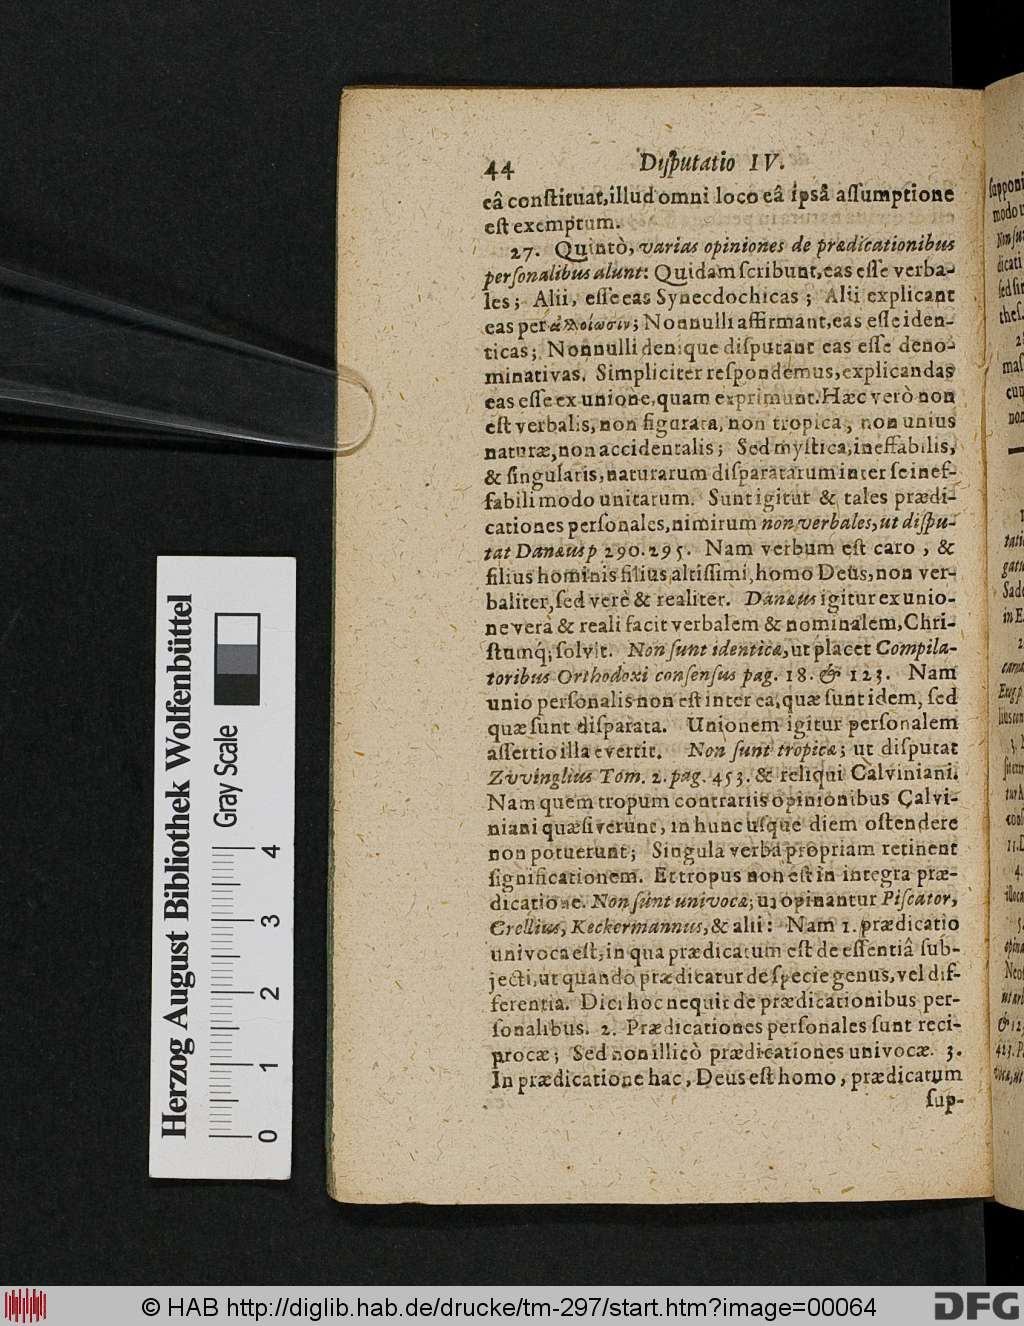 44 Diſputatio IV.
eâ conſtituat, illud omni loco eâ ipsâ aſſumptione
eſt exemptum.
27. Quintò, varias opiniones de prædicationibus
perſonalibus alunt: Quidam ſcribunt, eas eſſe verba-
les; Alii, eſſe eas Synecdochicas; Alii explicant
eas per ἀλλοίωσιν; Nonnulli affirmant, eas eſſe iden-
ticas; Nonnulli denique diſputant eas eſſe deno-
minativas. Simpliciter reſpondemus, explicandas
eas eſſe ex unione, quam exprimunt. Hæc verò non
eſt verbalis, non figurata, non tropica, non unius
naturæ, non accidentalis; Sed myſtica, ineffabilis,
& ſingularis, naturarum diſparatarum inter ſe inef-
fabili modo unitarum. Sunt igitur & tales prædi-
cationes perſonales, nimirum non verbales, ut diſpu-
tat Danæus p 290. 295. Nam verbum eſt caro, &
filius hominis filius altiſſimi, homo Deus, non ver-
baliter, ſed verè & realiter. Danæus igitur ex unio-
ne verâ & reali facit verbalem & nominalem, Chri-
ſtumq́; ſolvit. Non ſunt identicæ, ut placet Compila-
toribus Orthodoxi conſenſus pag. 18. & 123. Nam
unio perſonalis non eſt inter ea, quæ ſunt idem, ſed
quæ ſunt diſparata. Unionem igitur perſonalem
aſſertio illa evertit. Non ſunt tropicæ; ut diſputat
Zvvinglius Tom. 2. pag. 453. & reliqui Calviniani.
Nam quem tropum contrariis opinionibus Calvi-
niani quæſiverunt, in hunc uſque diem oſtendere
non potuerunt; Singula verba propriam retinent
ſignificationem. Et tropus non eſt in integra præ-
dicatione. Non ſunt univocæ; ut opinantur Piſcator,
Crellius, Keckermannus, & alii: Nam 1. prædicatio
univoca eſt, in qua prædicatum eſt de eſſentiâ ſub-
jecti, ut quando prædicatur de ſpecie genus, vel dif-
ferentia. Dici hoc nequit de prædicationibus per-
ſonalibus. 2. Prædicationes perſonales ſunt reci-
procæ; Sed non illicò prædicationes univocæ. 3.
In prædicatione hac, Deus eſt homo, prædicatum
ſup-
Herzog August Bibliothek Wolfenbüttel
Gray Scale
0 1 2 3 4
© HAB http://diglib.hab.de/drucke/tm-297/start.htm?image=00064
DFG